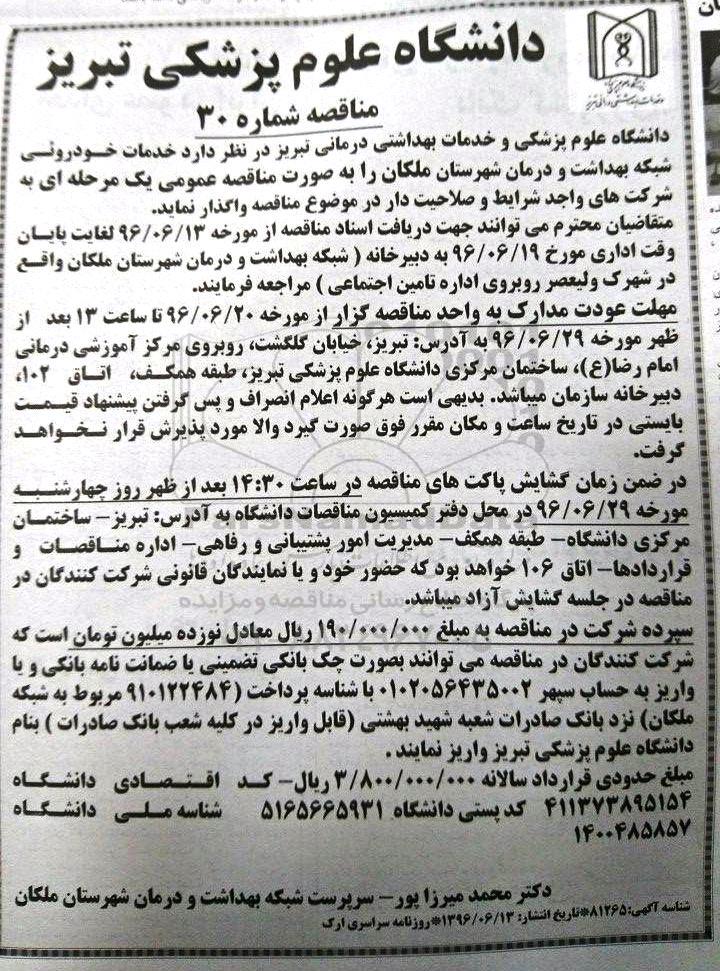 دانشگاه علوم پزشکی تبریز
مناقصه شماره ۳۰
دانشگاه علوم پزشکی و خدمات بهداشتی درمانی تبریز در نظر دارد خدمات خودروئی
شبکه بهداشت و درمان شهرستان ملکان را به صورت مناقصه عمومی یک مرحله ای به
شرکت های واجد شرایط و صلاحیت دار در موضوع مناقصه واگذار نماید.
متقاضیان محترم می توانند جهت دریافت اسناد مناقصه از مورخه ۹۶/۰۶/۱۳ لغایت پایان
وقت اداری مورخ ۹۶/۰۶/۱۹ به دبیرخانه ( شبکه بهداشت و درمان شهرستان ملکان واقع
در شهرک ولیعصر روبروی اداره تامین اجتماعی ) مراجعه فرمایند.
مهلت عودت مدارک به واحد مناقصه گزار از مورخه ۹۶/۰۶/۲۰ تا ساعت ۱۳ بعد از
ظهر مورخه ۹۶/۰۶/۲۹ به آدرس: تبریز، خیابان گلگشت، روبروی مرکز آموزشی درمانی
امام رضا(ع)، ساختمان مرکزی دانشگاه علوم پزشکی تبریز، طبقه همکف، اتاق ۱۰۲،
دبیرخانه سازمان میباشد. بدیهی است هرگونه اعلام انصراف و پس گرفتن پیشنهاد قیمت
بایستی در تاریخ ساعت و مکان مقرر فوق صورت گیرد والا مورد پذیرش قرار نخواهد
گرفت.
در ضمن زمان گشایش پاکت های مناقصه در ساعت ۱۴:۳۰ بعد از ظهر روز چهارشنبه
مورخه ۹۶/۰۶/۲۹ در محل دفتر کمیسیون مناقصات دانشگاه به آدرس: تبریز- ساختمان
مرکزی دانشگاه- طبقه همکف- مدیریت امور پشتیبانی و رفاهی- اداره مناقصات و
قراردادها- اتاق ۱۰۶ خواهد بود که حضور خود و یا نمایندگان قانونی شرکت کنندگان در
مناقصه در جلسه گشایش آزاد میباشد.
سپرده شرکت در مناقصه به مبلغ ۱۹۰/۰۰۰/۰۰۰ ریال معادل نوزده میلیون تومان است که
شرکت کنندگان در مناقصه می توانند بصورت چک بانکی تضمینی یا ضمانت نامه بانکی و یا
واریز به حساب سپهر ۰۱۰۲۰۵۶۴۳۵۰۰۲ با شناسه پرداخت (۹۱۰۱۲۲۴۸۴ مربوط به شبکه
ملکان) نزد بانک صادرات شعبه شهید بهشتی (قابل واریز در کلیه شعب بانک صادرات ) بنام
دانشگاه علوم پزشکی تبریز واریز نمایند .
مبلغ حدودی قرارداد سالانه ۳/۸۰۰/۰۰۰/۰۰۰ ریال- کد اقتصادی دانشگاه
۴۱۱۳۷۳۸۹۵۱۵۴ کد پستی دانشگاه ۵۱۶۵۶۶۵۹۳۱ شناسه ملی دانشگاه
۱۴۰۰۴۸۵۸۵۷
دکتر محمد میرزا پور- سرپرست شبکه بهداشت و درمان شهرستان ملکان
شناسه آگهی:۸۱۲۶۵*تاریخ انتشار: ۱۳۹۶/۰۶/۱۳*روزنامه سراسری ارک